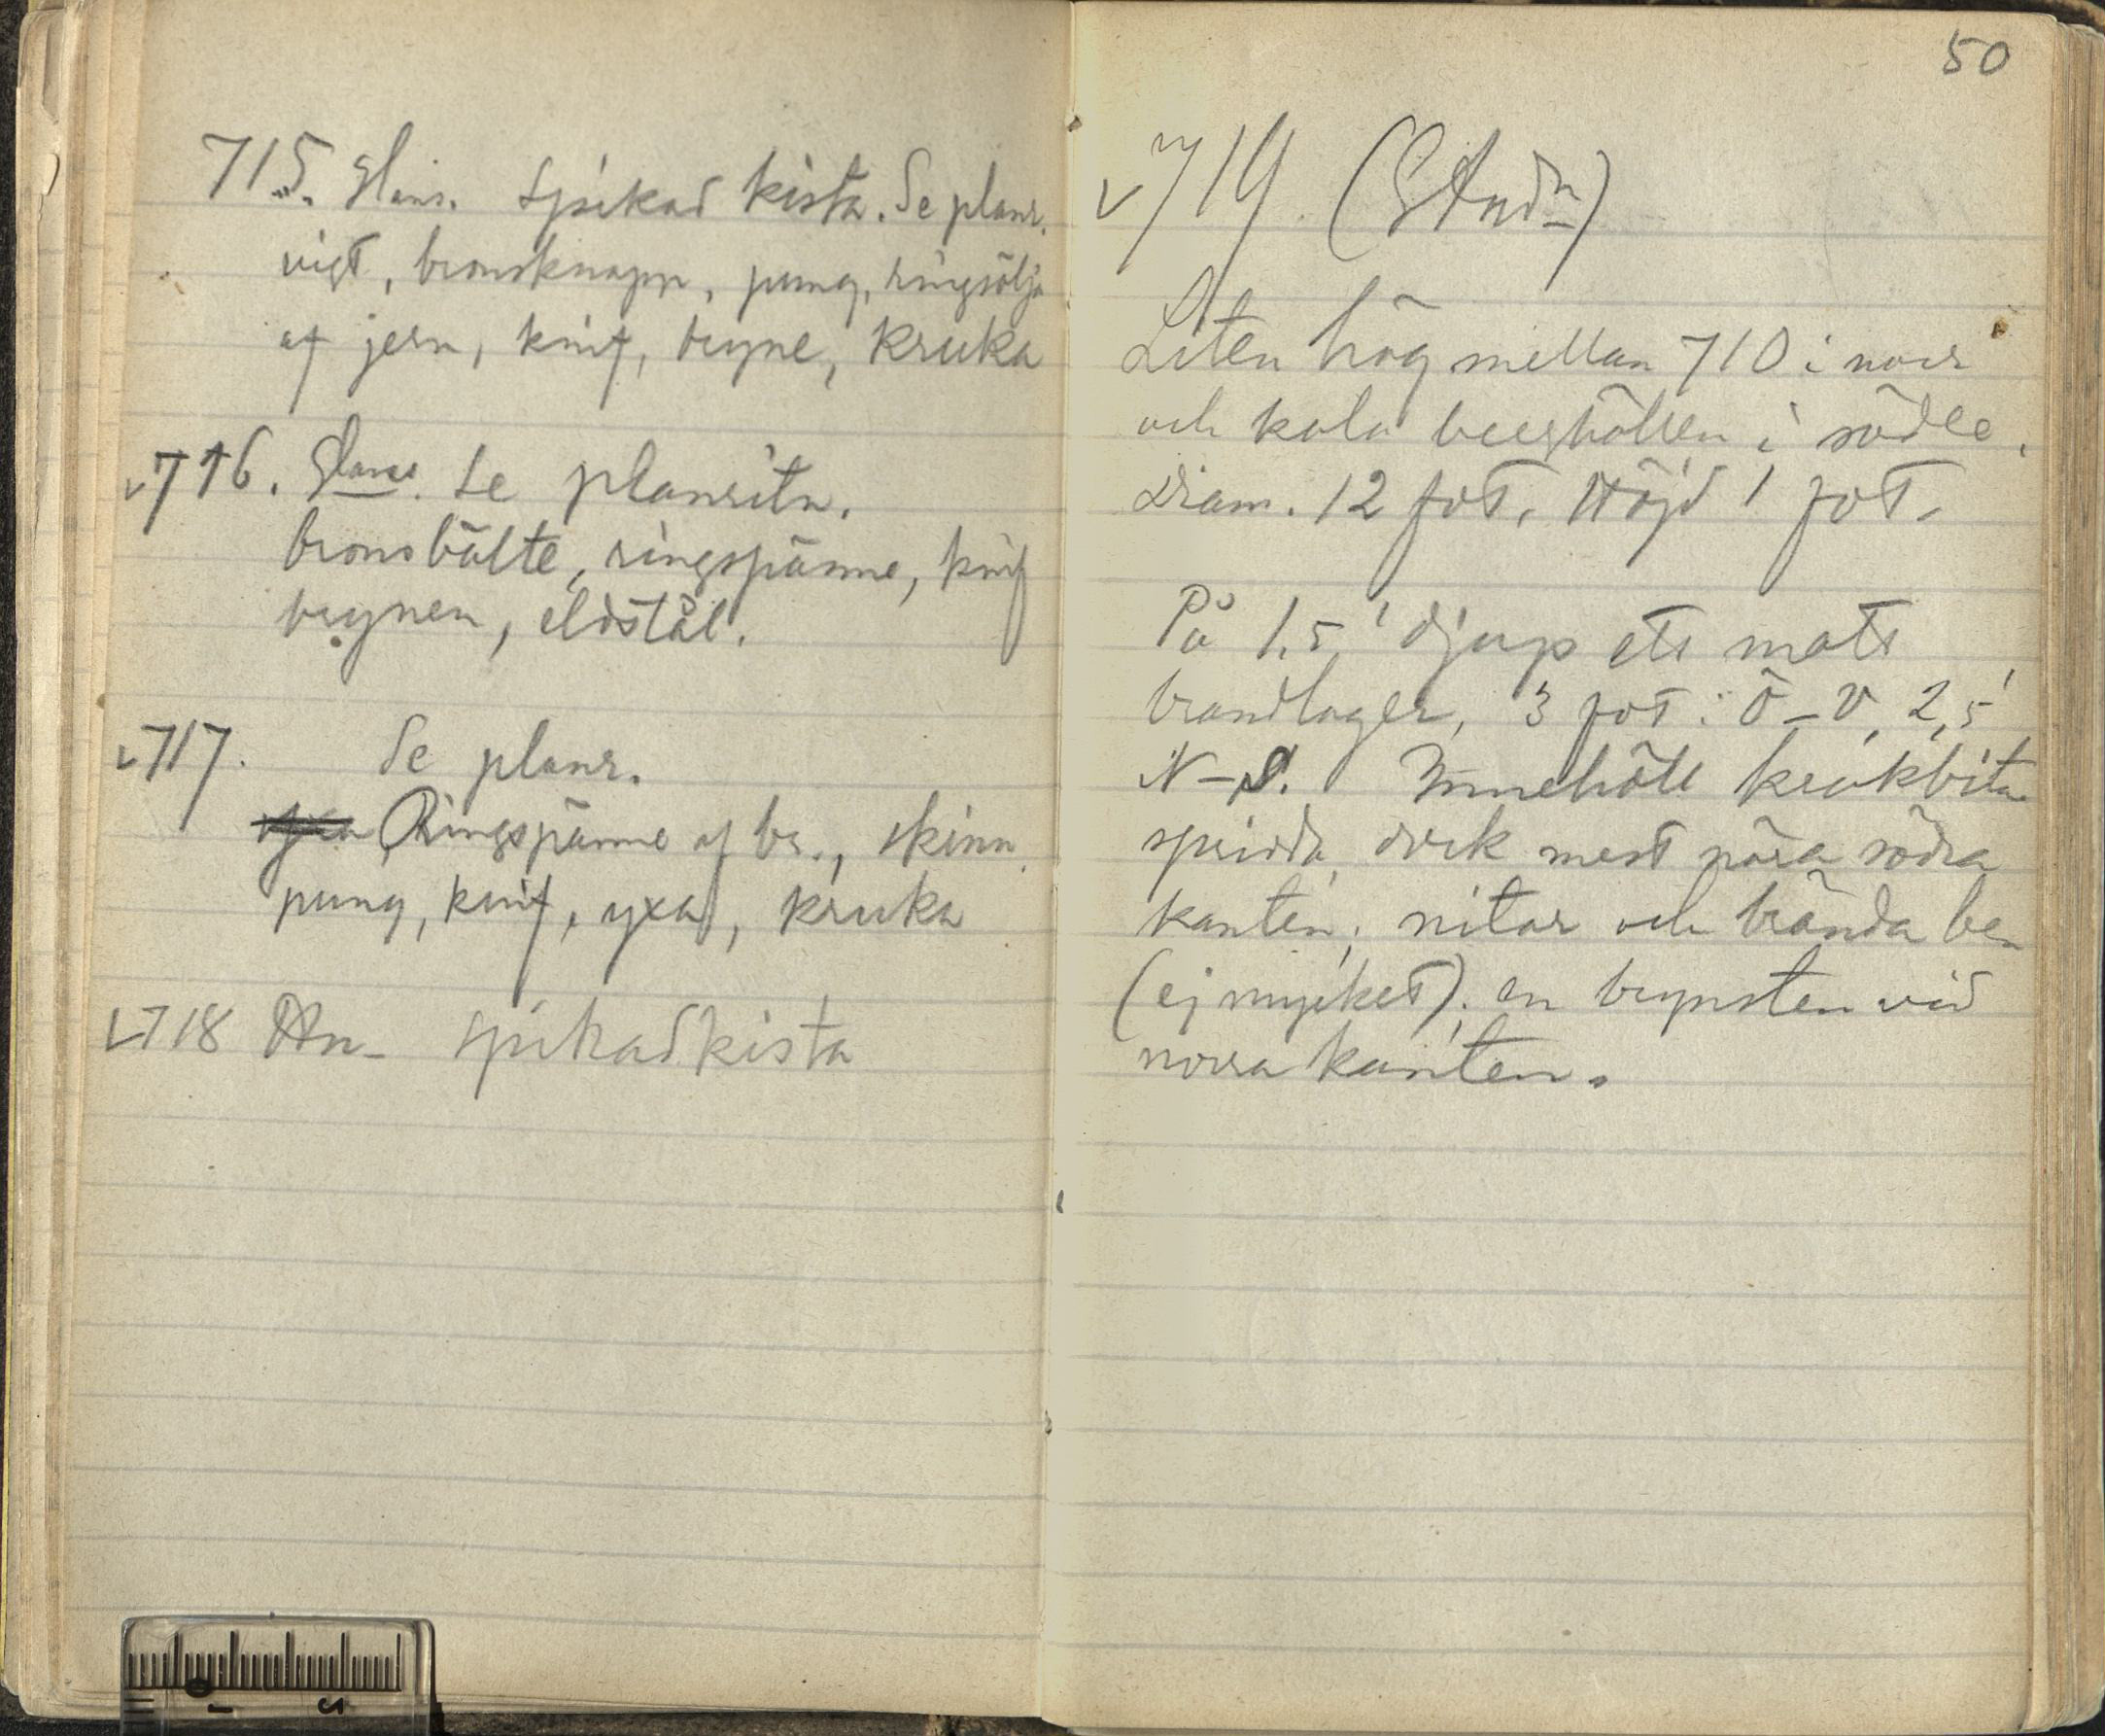 715. Glans. Spikad kista. Se planr.
vigt, bronsknapp, pung, ringsölja
af jern, knif, bryne, kruka
716. Glans. Se planritn.
bronsbälte, ringspänne, knif
brynen, eldstål.
717. Se planr.
yxa Ringspänne af br., skinn
pung, knif, yxa, kruka
718 An- spikadkista
50
719 (GAndn)
Liten hög mellan 710 i norr
och kala berghällen i söder.
Diam. 12 fot. Höjd 1 fot.
På 1,5' djup ett matt
brandlager, 3 fot i Ö–V, 2,5'
N–S. Innehöll krukbitar
spridda, dock mest nära södra
kanten; nitar och brända ben
(ej mycket); en brynsten vid
norra kanten.